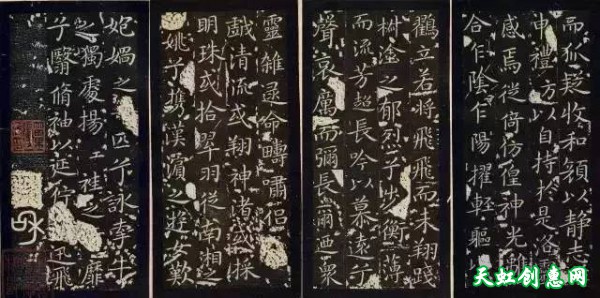 而狐疑收和顏以静志
申禮防以自持於是洛
感焉徙倚彷徨神光離
合乍陰乍陽擢輕軀以
鸛立若將飛飛而未翔踐
椒塗之郁烈兮步蘅薄
而流芳超長吟以慕遠兮
聲哀厲而彌長爾迺衆
靈雜遝命疇嘯侣
戲清流或翔神渚或採
明珠或拾翠羽從南湘之
姚兮携漢濱之遊女歎
妑媧之匹兮詠牽牛
之獨處揚輕袿之靡
兮翳脩袖以延佇迅飛
天虹创意网